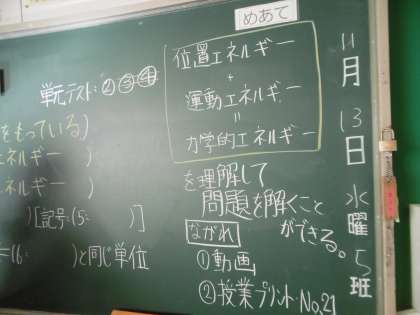 めあて
位置エネルギー
+
運動エネルギー
=
力学的エネルギー
を理解して
問題を解くこと
ができる。
ながれ
①動画
②授業プリントNo.21
11月13日水曜5班
単元テスト:②③④
をもっている)
エネルギー )
エネルギー )
)[記号(5: )]
=(6: )と同じ単位